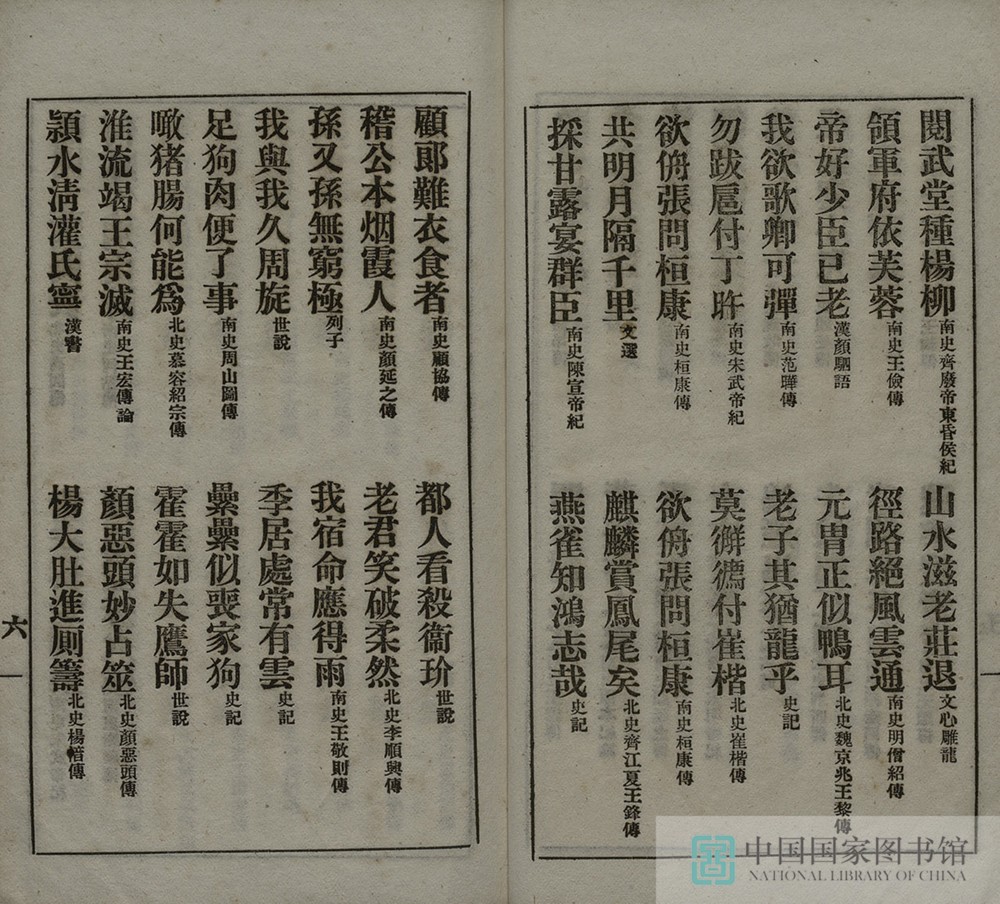 閱武堂種楊柳南史齊廢帝東昏侯紀
山水滋老莊退文心雕龍
領軍府依芙蓉南史王儉傳
徑路絕風雲通南史明僧紹傳
帝好少臣已老漢顏駟語
元冑正似鴨耳北史魏京兆王黎傳
我欲歌卿可彈南史范曄傳
老子其猶龍乎史記
勿跋扈付丁旿南史宋武帝紀
莫獬㺊付崔楷北史崔楷傳
欲侜張問桓康南史桓康傳
欲侜張問桓康南史桓康傳
共明月隔千里文選
麒麟賞鳳尾矣北史齊江夏王鋒傳
採甘露宴群臣南史陳宣帝紀
燕雀知鴻志哉史記
顧郎難衣食者南史顧協傳
都人看殺衞玠世說
稽公本烟霞人南史顏延之傳
老君笑破柔然北史李順興傳
孫又孫無窮極列子
我宿命應得雨南史王敬則傳
我與我久周旋世說
季居處常有雲史記
足狗肉便了事南史周山圖傳
纍纍似喪家狗史記
噉猪腸何能爲北史慕容紹宗傳
霍霍如失鷹師世說
淮流竭王宗滅南史王宏傳論
顏惡頭妙占筮北史顏惡頭傳
潁水淸灌氏寧漢書
楊大肚進厠籌北史楊愔傳
六
中国国家图书馆
NATIONAL LIBRARY OF CHINA